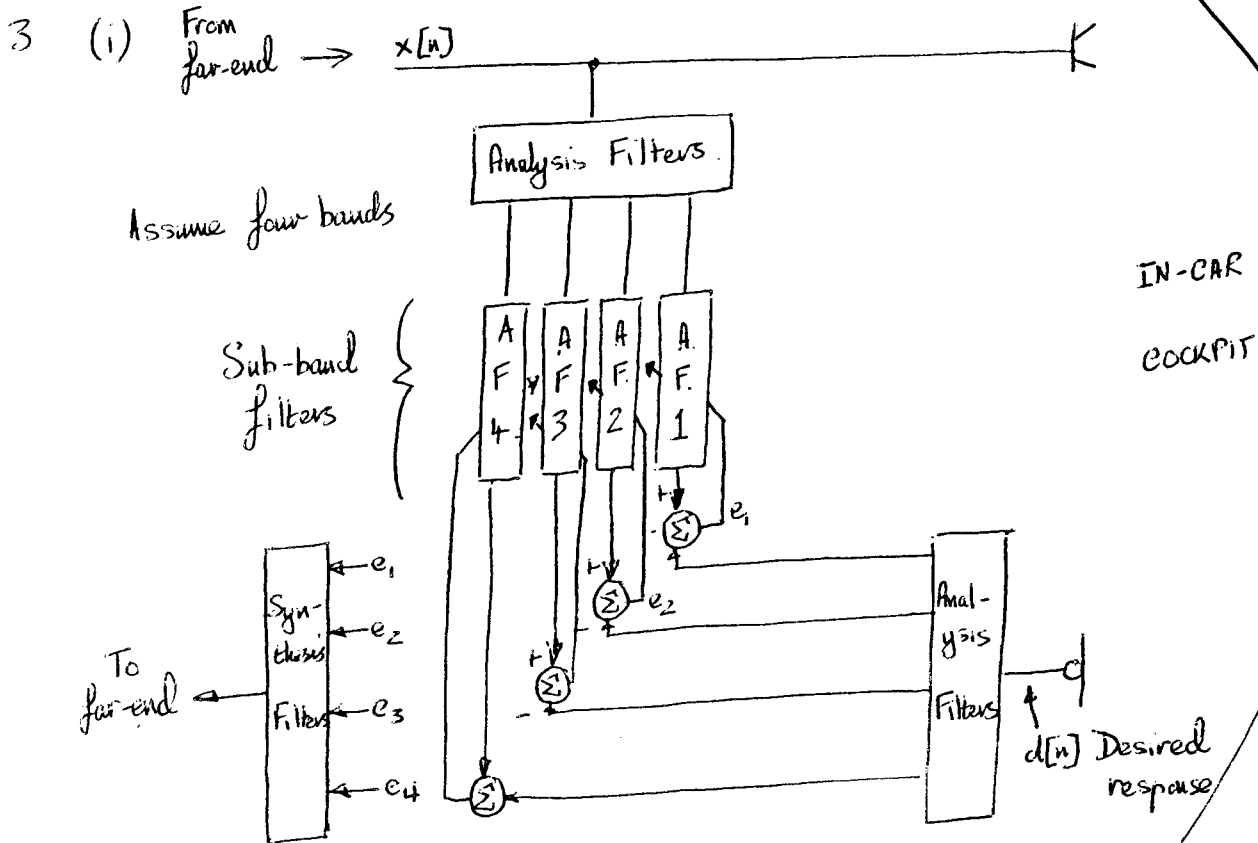 3 (i) From
far-end → x[n]
Analysis Filters
Assume four bands
IN-CAR
COCKPIT
Sub-band
filters
A
F
4
A
F
3
A
F.
2
A.
F.
1
+
-
Σ
e₁
+
-
Σ
e₂
+
-
Σ
Σ
Syn-
thesis
Filters
e₁
e₂
e₃
e₄
To
far-end
Anal-
ysis
Filters
d[n] Desired
response